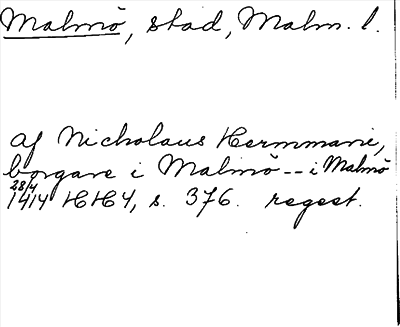 Malmö, stad, Malm. l.
af Nicholaus Hermmani,
borgare i Malmö -- i Malmö
28/4
1414 HH4, s. 376. regest.